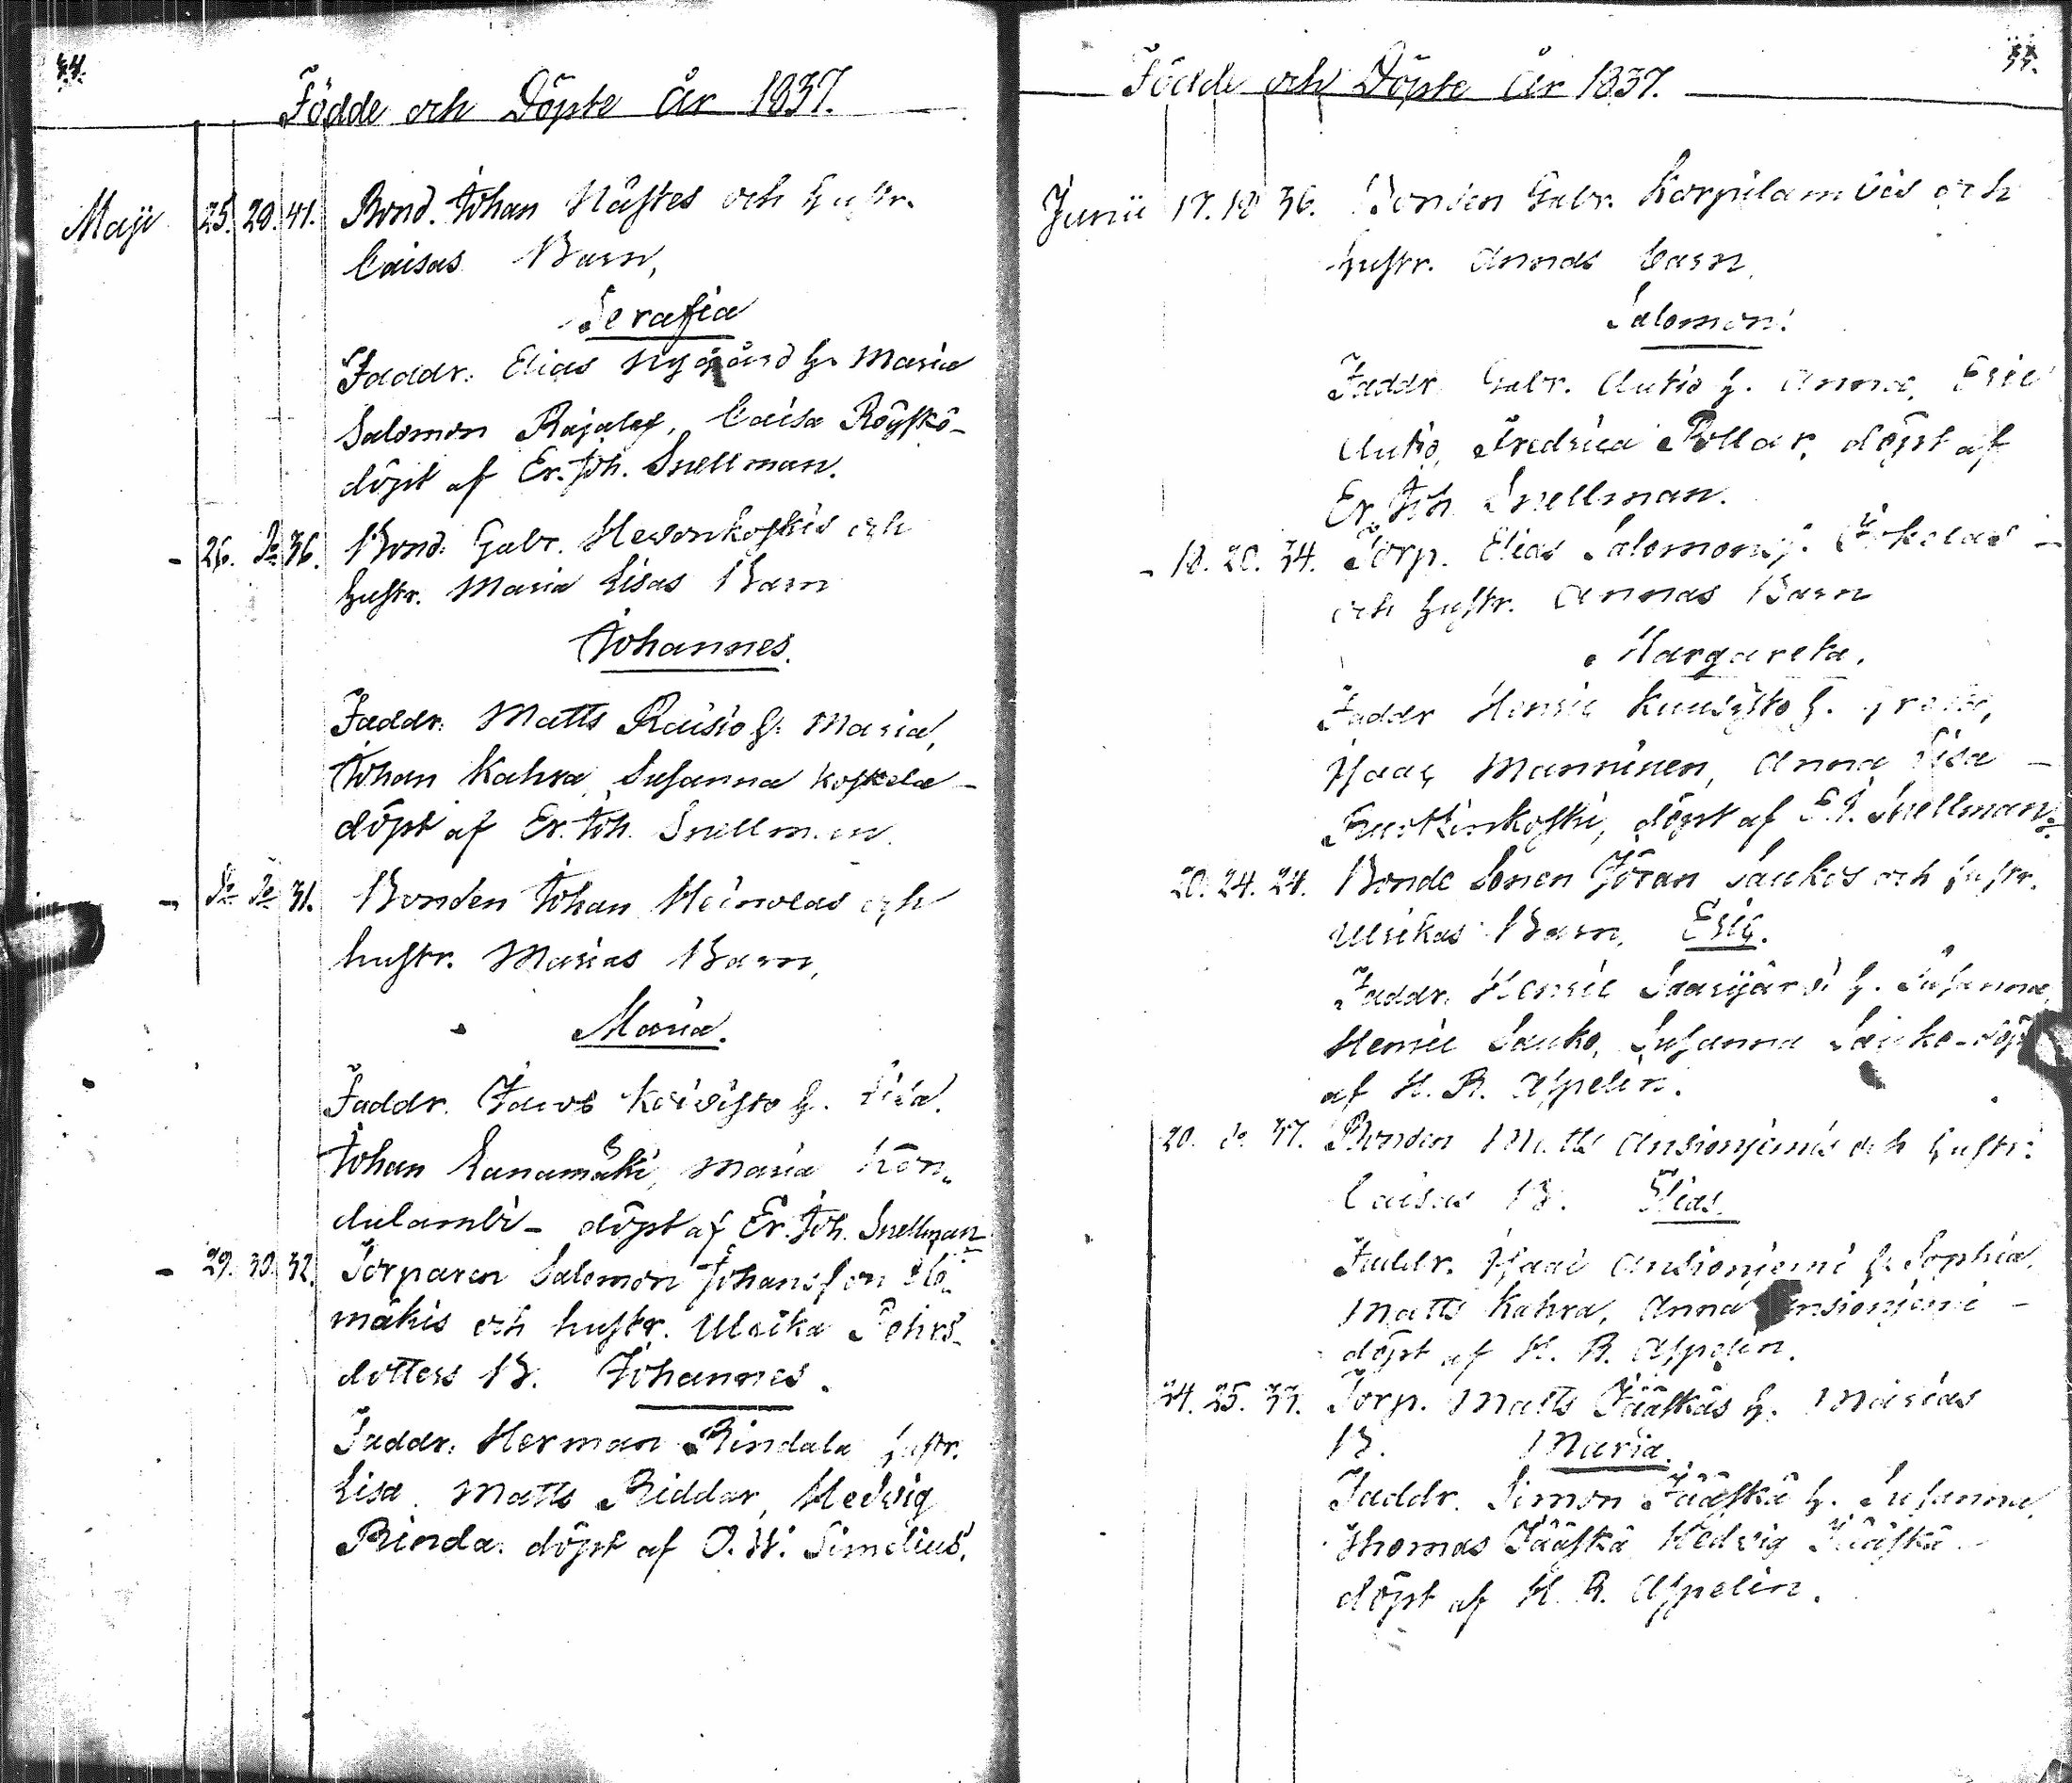 Födde och Döpte År 1837.
Maji 25. 28. 41. Bond. Johan Nästes och Hustr.
Caisas Barn,
Serafia
Faddr. Elias Nygård H. Maria
Salomon Rajalax, Caisa Röyskö-
döpt af Er. Joh. Snellman.
- 26. Do 36. Bond. Gabr. Hevonkoskis och
Hustr. Maria Lisas Barn
Johannes.
Faddr. Matts Raisio H. Maria,
Johan Kahra, Susanna Koskela -
döpt af Er. Joh. Snellman.
- Do Do 31. Bonden Johan Heinolas och
hustr. Marias Barn,
Maria.
Faddr. Jacob Koivisto H. Lisa.
Johan Lanamäki, Maria Kon-
dulambi - döpt af Er. Joh. Snellman
- 29. 30. 32. Torparen Salomon Johansson
mäkis och hustr. Ulrika Pehrs-
dotters B. Johannes.
Faddr. Herman Rindala Hustr.
Lisa. Matts Riddar, Hedvig
Rinda. döpt af O. W. Simelius.
Födde och Döpte År 1837.
Junii 17. 18 36. Bonden Gabr. Karpilambis och
Hustr. Annas barn,
Salomon.
Faddr. Gabr. Autio H. Anna, Eric
Autio, Fredrica Pollar, döpt af
Er. Joh. Snellman.
- 18. 20. 34. Torp. Elias Salomons.
och Hustr. Annas Barn
Margareta.
Faddr Henric Kuusisto H.
Isaac Manninen, Anna Lisa -
döpt af E. J. Snellman.
20. 24. 24. Bonde Sonen Jöran Saukos och hustr.
Ulrikas Barn, Eric.
Faddr. Henric Saarijärvi H. Susanna,
Henric Sauko, Susanna Sauko - döpt
af H. R. Aspelin.
20. do 37. Bonden Matts Ansioniemis och Hustr:
Caisas B. Elias.
Faddr. Isaac Ansioniemi H. Sophia.
Matts Kahra, Anna Ansioniemi -
döpt af H. R. Aspelin.
24. 25. 33. Torp. Matts Jääskäs H. Marias
B. Maria.
Faddr. Simon Jääskä H. Susanna,
Thomas Jääskä Hedvig Jääskä -
döpt af H. R. Aspelin.